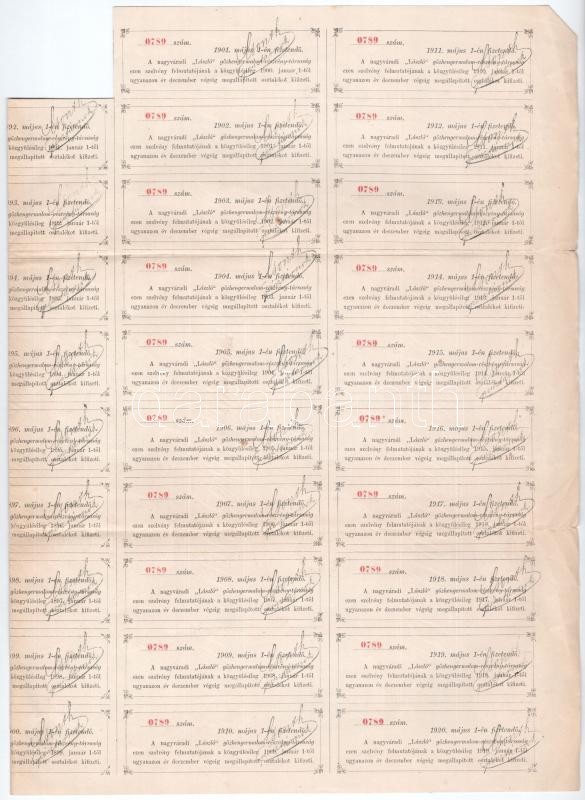 0789 szám. 1901. május 1-én fizetendő.
A nagyváradi „László" gőzhengermalom-részvény-társaság
ezen szelvény felmutatójának a közgyűlésileg 1900. január 1-től
ugyanazon év deczember végeig megállapított osztalékot kifizeti.
0789 szám. 1911. május 1-én fizetendő.
A nagyváradi „László" gőzhengermalom-részvény-társaság
ezen szelvény felmutatójának a közgyűlésileg 1910. január 1-től
ugyanazon év deczember végeig megállapított osztalékot kifizeti.
92. május 1-én fizetendő.
gőzhengermalom-részvény-társaság
közgyűlésileg 1891. január 1-től
megállapított osztalékot kifizeti.
0789 szám. 1902. május 1-én fizetendő.
A nagyváradi „László" gőzhengermalom-részvény-társaság
ezen szelvény felmutatójának a közgyűlésileg 1901. január 1-től
ugyanazon év deczember végeig megállapított osztalékot kifizeti.
0789 szám. 1912. május 1-én fizetendő.
A nagyváradi „László" gőzhengermalom-részvény-társaság
ezen szelvény felmutatójának a közgyűlésileg 1911. január 1-től
ugyanazon év deczember végeig megállapított osztalékot kifizeti.
93. május 1-én fizetendő.
gőzhengermalom-részvény-társaság
közgyűlésileg 1892. január 1-től
megállapított osztalékot kifizeti.
0789 szám. 1903. május 1-én fizetendő.
A nagyváradi „László" gőzhengermalom-részvény-társaság
ezen szelvény felmutatójának a közgyűlésileg 1902. január 1-től
ugyanazon év deczember végeig megállapított osztalékot kifizeti.
0789 szám. 1913. május 1-én fizetendő.
A nagyváradi „László" gőzhengermalom-részvény-társaság
ezen szelvény felmutatójának a közgyűlésileg 1912. január 1-től
ugyanazon év deczember végeig megállapított osztalékot kifizeti.
94. május 1-én fizetendő.
gőzhengermalom-részvény-társaság
közgyűlésileg 1893. január 1-től
megállapított osztalékot kifizeti.
0789 szám. 1904. május 1-én fizetendő.
A nagyváradi „László" gőzhengermalom-részvény-társaság
ezen szelvény felmutatójának a közgyűlésileg 1903. január 1-től
ugyanazon év deczember végeig megállapított osztalékot kifizeti.
0789 szám. 1914. május 1-én fizetendő.
A nagyváradi „László" gőzhengermalom-részvény-társaság
ezen szelvény felmutatójának a közgyűlésileg 1913. január 1-től
ugyanazon év deczember végeig megállapított osztalékot kifizeti.
95. május 1-én fizetendő.
gőzhengermalom-részvény-társaság
közgyűlésileg 1894. január 1-től
megállapított osztalékot kifizeti.
0789 szám. 1905. május 1-én fizetendő.
A nagyváradi „László" gőzhengermalom-részvény-társaság
ezen szelvény felmutatójának a közgyűlésileg 1904. január 1-től
ugyanazon év deczember végeig megállapított osztalékot kifizeti.
0789 szám. 1915. május 1-én fizetendő.
A nagyváradi „László" gőzhengermalom-részvény-társaság
ezen szelvény felmutatójának a közgyűlésileg 1914. január 1-től
ugyanazon év deczember végeig megállapított osztalékot kifizeti.
896. május 1-én fizetendő.
gőzhengermalom-részvény-társaság
közgyűlésileg 1895. január 1-től
megállapított osztalékot kifizeti.
0789 szám. 1906. május 1-én fizetendő.
A nagyváradi „László" gőzhengermalom-részvény-társaság
ezen szelvény felmutatójának a közgyűlésileg 1905. január 1-től
ugyanazon év deczember végeig megállapított osztalékot kifizeti.
0789 szám. 1916. május 1-én fizetendő.
A nagyváradi „László" gőzhengermalom-részvény-társaság
ezen szelvény felmutatójának a közgyűlésileg 1915. január 1-től
ugyanazon év deczember végeig megállapított osztalékot kifizeti.
897. május 1-én fizetendő.
gőzhengermalom-részvény-társaság
közgyűlésileg 1896. január 1-től
megállapított osztalékot kifizeti.
0789 szám. 1907. május 1-én fizetendő.
A nagyváradi „László" gőzhengermalom-részvény-társaság
ezen szelvény felmutatójának a közgyűlésileg 1906. január 1-től
ugyanazon év deczember végeig megállapított osztalékot kifizeti.
0789 szám. 1917. május 1-én fizetendő.
A nagyváradi „László" gőzhengermalom-részvény-társaság
ezen szelvény felmutatójának a közgyűlésileg 1916. január 1-től
ugyanazon év deczember végeig megállapított osztalékot kifizeti.
898. május 1-én fizetendő.
gőzhengermalom-részvény-társaság
közgyűlésileg 1897. január 1-től
megállapított osztalékot kifizeti.
0789 szám. 1908. május 1-én fizetendő.
A nagyváradi „László" gőzhengermalom-részvény-társaság
ezen szelvény felmutatójának a közgyűlésileg 1907. január 1-től
ugyanazon év deczember végeig megállapított osztalékot kifizeti.
0789 szám. 1918. május 1-én fizetendő.
A nagyváradi „László" gőzhengermalom-részvény-társaság
ezen szelvény felmutatójának a közgyűlésileg 1917. január 1-től
ugyanazon év deczember végeig megállapított osztalékot kifizeti.
99. május 1-én fizetendő.
gőzhengermalom-részvény-társaság
közgyűlésileg 1898. január 1-től
megállapított osztalékot kifizeti.
0789 szám. 1909. május 1-én fizetendő.
A nagyváradi „László" gőzhengermalom-részvény-társaság
ezen szelvény felmutatójának a közgyűlésileg 1908. január 1-től
ugyanazon év deczember végeig megállapított osztalékot kifizeti.
0789 szám. 1919. május 1-én fizetendő.
A nagyváradi „László" gőzhengermalom-részvény-társaság
ezen szelvény felmutatójának a közgyűlésileg 1918. január 1-től
ugyanazon év deczember végeig megállapított osztalékot kifizeti.
00. május 1-én fizetendő.
gőzhengermalom-részvény-társaság
közgyűlésileg 1899. január 1-től
megállapított osztalékot kifizeti.
0789 szám. 1910. május 1-én fizetendő.
A nagyváradi „László" gőzhengermalom-részvény-társaság
ezen szelvény felmutatójának a közgyűlésileg 1909. január 1-től
ugyanazon év deczember végeig megállapított osztalékot kifizeti.
0789 szám. 1920. május 1-én fizetendő.
A nagyváradi „László" gőzhengermalom-részvény-társaság
ezen szelvény felmutatójának a közgyűlésileg 1919. január 1-től
ugyanazon év deczember végeig megállapított osztalékot kifizeti.